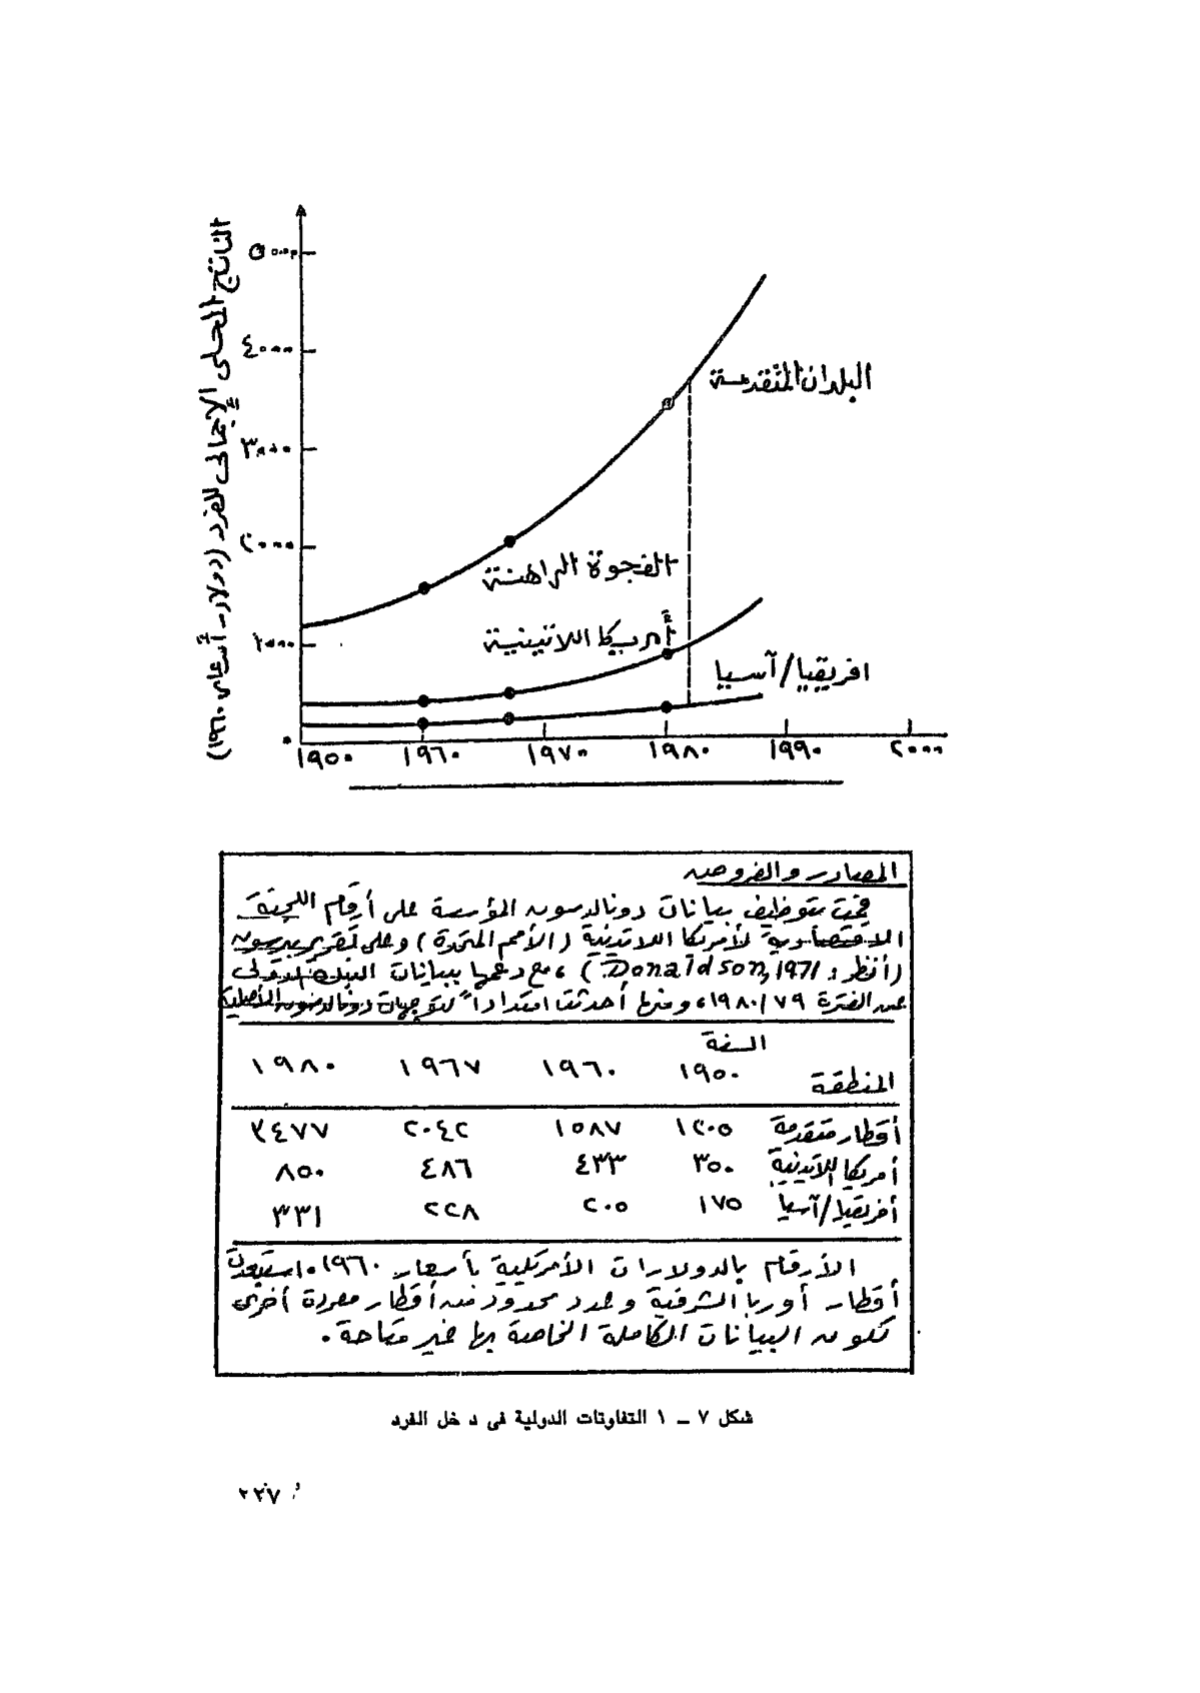 الناتج المحلى الإجمالى للفرد (دولار أسعار ١٩٦٠)
٥٠٠٠
٤٠٠٠
٣٠٠٠
٢٠٠٠
١٠٠٠
٠
البلدان المتقدمة
الفجوة الراهنة
أمريكا اللاتينية
افريقيا/آسيا
١٩٥٠ ١٩٦٠ ١٩٧٠ ١٩٨٠ ١٩٩٠ ٢٠٠٠
المصادر والفروض
قمت بتوظيف بيانات دونالدسون المؤسسة على أرقام اللجنة
الاقتصادية لأمريكا اللاتينية (الأمم المتحدة) وعلى تقرير بيرسون
(أنظر: Donaldson, 1971)، مع دعمها ببيانات البنك الدولى
عن الفترة ١٩٨٠/٧٩، ومنها أحدثت امتداداً لتوجهات دونالدسون الأصلية
السنة
المنطقة ١٩٥٠ ١٩٦٠ ١٩٦٧ ١٩٨٠
أقطار متقدمة ١٢٠٥ ١٥٨٧ ٢٠٤٢ ٣٤٧٧
أمريكا اللاتينية ٣٥٠ ٤٣٣ ٤٨٦ ٨٥٠
أفريقيا/آسيا ١٧٥ ٢٠٥ ٢٢٨ ٣٣١
الأرقام بالدولارات الأمريكية بأسعار ١٩٦٠. استبعدت
أقطار أوربا الشرقية وعدد محدود من أقطار مفردة أخرى
لكون البيانات الكاملة الخاصة بها غير متاحة.
شكل ٧ – ١ التفاوتات الدولية فى دخل الفرد
٢٢٧